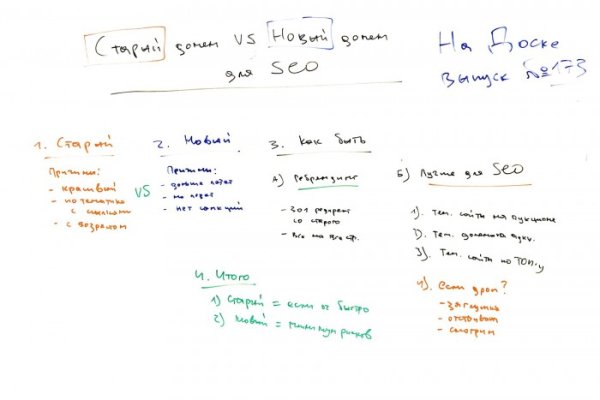 Старый домен VS Новый домен
для SEO
На Доске
выпуск №173
1. Старый
Причины:
- красивый
- по тематике
с ссылками
- с возрастом
VS
2. Новый
Причины:
- дольше
- не
- нет санкций
3. Как быть
А) Ребрендинг
- 301 редирект
со старого
- Все на все стр.
Б) Лучше для SEO
1). Тем. сайты на аукционе
2). Тем. домены аукц.
3). Тем. сайты по ТОП-у
4). Если дроп?
- заглушка
- отстоивать
- смотрим
4. Итого
1) Старый = если ок быстро
2) Новый = минимум рисков